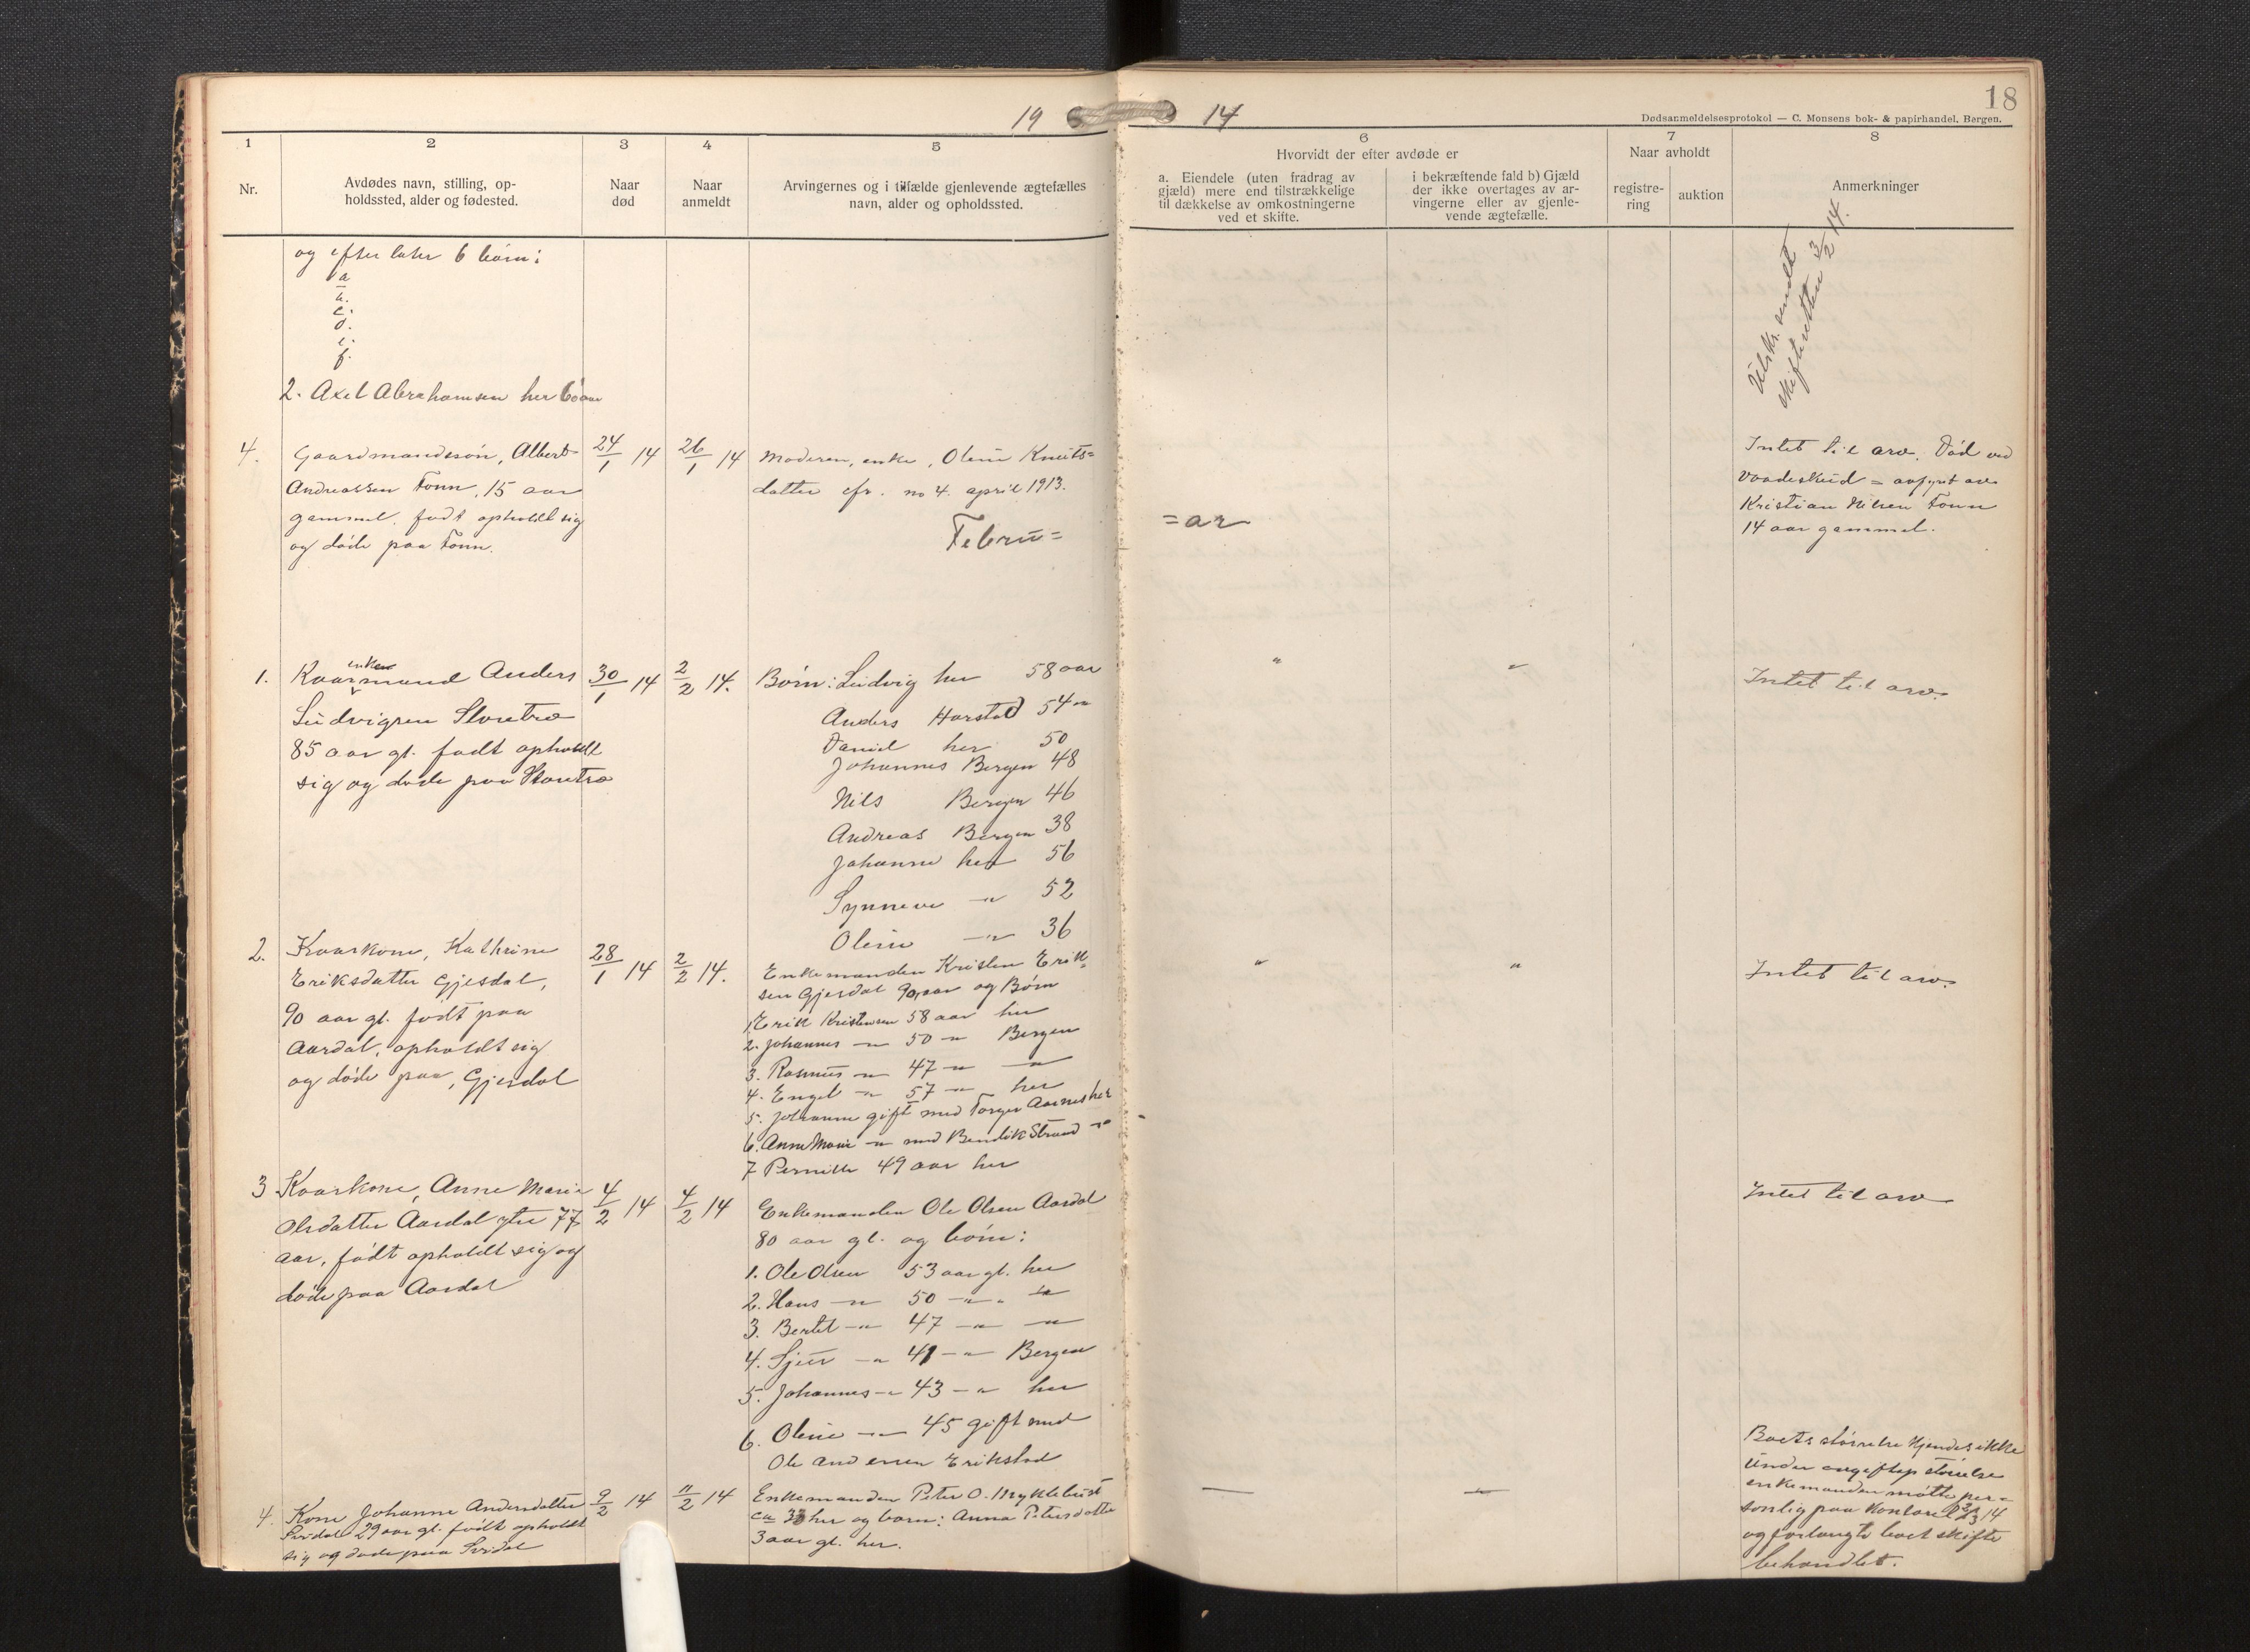 19 14
18
Dødsanmeldelsesprotokol — C. Monsens bok- & papirhandel, Bergen.
1
2
3
4
5
6
7
8
Nr.
Avdødes navn, stilling, op-
holdssted, alder og fødested.
Naar
død
Naar
anmeldt
Arvingernes og i tilfælde gjenlevende ægtefælles
navn, alder og opholdssted.
Hvorvidt der efter avdøde er
a. Eiendele (uten fradrag av
gjæld) mere end tilstrækkelige
til dækkelse av omkostningerne
ved et skifte.
i bekræftende fald b) Gjæld
der ikke overtages av ar-
vingerne eller av gjenle-
vende ægtefælle.
Naar avholdt
registre-
ring
auktion
Anmerkninger
og efter later 6 børn:
a
b.
c.
d.
e.
f.
2. Axel Abrahamsen her 60 aar
Utskr. sendt
skifteretten 3/2 14.
4.
Gaardmandssøn, Albert
Andreassen Tonn, 15 aar
gammel. født opholdt sig
og døde paa Tonn.
24/1 14
26/1 14
Moderen, enke, Oline Knuts=
datter cfr. no 4. april 1913.
Intet til arv. Død ved
Vaadeskud = avfyrt av
Kristian Nilsen Tonn
14 aar gammel.
Febru= =ar
1.
Kaarenkemand Anders
Ludvigsen Storetra
85 aar gl. født opholdt
sig og døde paa Storetra
30/1 14
2/2 14.
Børn: Ludvig her 58 aar
Anders Harstad 54 "
Daniel her 50
Johannes Bergen 48
Nils Bergen 46
Andreas Bergen 38
Johanne her 56
Synneve — " 52
Oline — " 36
"
"
Intet til arv.
2.
Kaarkone, Kathrine
Eriksdatter Gjesdal,
90 aar gl. født paa
Aardal, opholdt sig
og døde paa, Gjesdal
28/1 14
2/2 14.
Enkemanden Kristen Erik=
sen Gjesdal 90 aar og Børn
1. Erik Kristensen 58 aar her
2. Johannes — " 50 — " Bergen
3. Rasmus — " 47 — " — "
4. Engel — " 57 — " her
5. Johanne gift med Torger Aarnes her
6. Anne Marie — " med Bendik Strand — "
7 Pernille 49 aar her
"
"
Intet til arv.
3
Kaarkone, Anne Marie
Olsdatter Aardal ytre 77
aar, født opholdt sig og
døde paa Aardal
4/2 14
4/2 14
Enkemanden Ole Olsen Aardal
80 aar gl. og børn:
1. Ole Olsen 53 aar gl. her
2. Hans — " 50 — " "
3. Bertel — " 47 — " — "
4. Sjur — " 41 — " Bergen
5. Johannes — " 43 — " her
6. Oline — " 45 gift med
Ole Andersen Erikstad
Intet til arv
4.
Kone Johanne Andersdatter
Svidal 29 aar gl. født opholdt
sig og døde paa Svidal
9/2 14
11/2 14
Enkemanden Peter O. Myklebust
ca 33 her og barn: Anna Petersdatter
3 aar gl. her.
—
—
Boets størrelse kjendes ikke
Under størrelse
enkemanden møtte per=
sonlig paa kontoret 14
og forlangte boet skifte
behandlet.